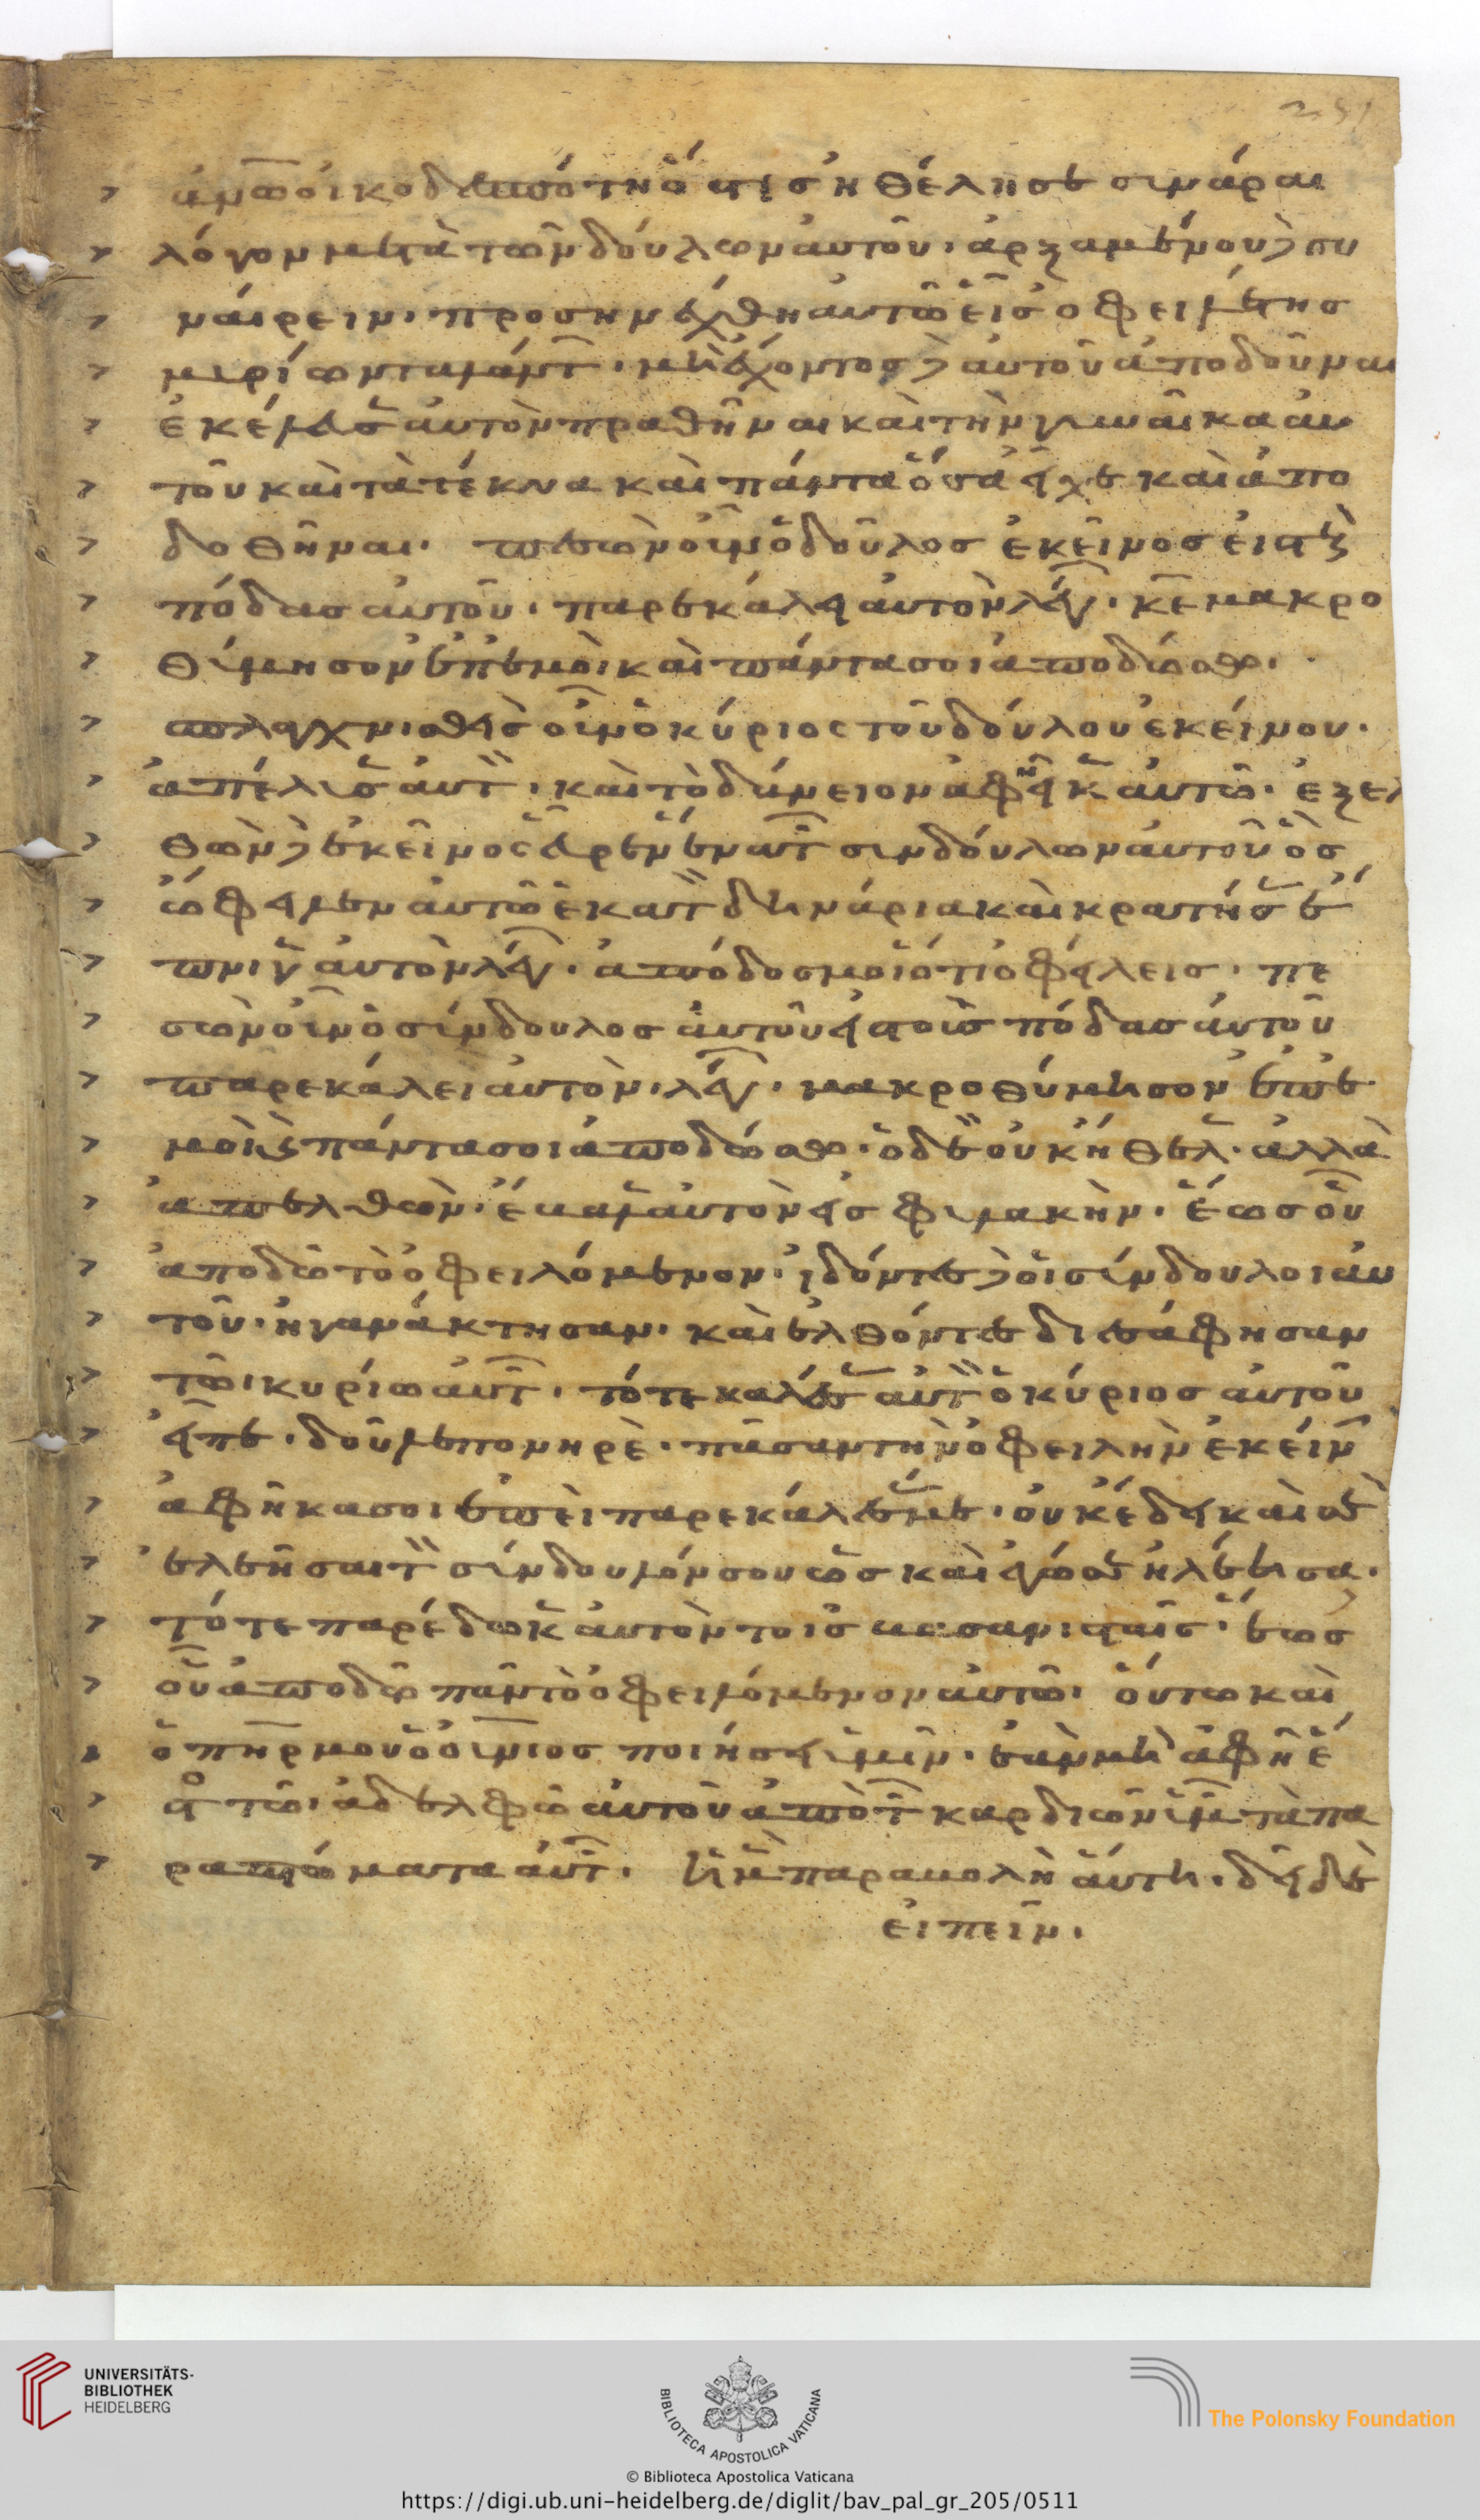 251
ἀν̅ω̅ οἰκοδεσπότηὅστις ἠθέλησε συνάραι
λόγον μετὰ τῶν δούλων αὐτοῦ. ἀρξαμένου δὲ συ
ναίρειν. προσηνέχθη αὐτῶ εἷς ὀφειλέτης
μυρίων ταλάντ. μὴ ἔχοντος δὲ αὐτοῦ ἀποδοῦναι
ἐκέλευσ αὐτὸν πραθῆναι καὶ τὴν γυναῖκα αὐ
τοῦ καὶ τὰ τέκνα καὶ πάντα ὅσα εἶχε καὶ ἀπο
δοθῆναι. πεσὼν οὖν ὁ δοῦλος ἐκεῖνος εἰς τοὺς
πόδας αὐτοῦ. παρεκάλει αὐτὸν λέγ. κ̅ε̅ μακρο
θύμησον ἐπ' ἐμοὶ καὶ πάντα σοι ἀποδώσω.
σπλαγχνισθεὶς οὖν ὁ κύριος τοῦ δούλου ἐκείνου.
ἀπέλυσ αὐτ. καὶ τὸ δάνειον ἀφῆκ αὐτῶ. ἐξελ
θὼν δὲ ἐκεῖνος εὗρεν ἕνα τ συνδούλων αὐτοῦ ὃς
ὤφειλεν αὐτῶ ἑκατ δηνάρια καὶ κρατήσ ἔ
πνιγ αὐτὸν λέγ. ἀπόδος μοι ὅ τι ὀφείλεις. πε
σὼν οὖν ὁ σύνδουλος αὐτοῦ εἰς τοὺς πόδας αὐτοῦ
παρεκάλει αὐτὸν. λέγ. μακροθύμησον ἐπ' ἐ
μοὶ καὶ πάντα σοι ἀποδώσω. ὁ δὲ οὐκ ἤθελ. ἀλλὰ
ἀπελθὼν. ἔβαλ αὐτὸν εἰς φυλακὴν. ἕως οὗ
ἀποδῶ τὸ ὀφειλόμενον. ἰδόντες δὲ οἱ σύνδουλοι αὐ
τοῦ. ἠγανάκτησαν. καὶ ἐλθόντες διεσάφησαν
τῶ κυρίω αὐτ. τότε καλέσ αὐτ ὁ κύριος αὐτοῦ
εἶπε. δοῦλε πονηρὲ. πᾶσαν τὴν ὀφειλὴν ἐκείν
ἀφῆκα σοι ἐπεὶ παρεκάλεσ με. οὐκ ἔδει καὶ σὲ
ἐλεῆσαι τ σύνδουλόν σου ὡς καὶ ἐγώ σε ἠλέησα.
τότε παρέδωκ αὐτὸν τοῖς βασανισταῖς. ἕως
οὗ ἀποδῶ πᾶν τὸ ὀφειλόμενον αὐτῶ. οὕτω καὶ
ὁ π̅η̅ρ μου ὁ ο̅υ̅νιος ποιήσει ὑμῖν. ἐὰν μὴ ἀφῆ ἕ
καστ τῶ ἀδελφῶ αὐτοῦ ἀπὸ τ καρδιῶν ὑμ τὰ πα
ραπτώματα αὐτ. ἡ μὲν παραβολὴ αὕτη. δεῖ δὲ
εἰπεῖν.
UNIVERSITÄTS-
BIBLIOTHEK
HEIDELBERG
BIBLIOTECA APOSTOLICA VATICANA
The Polonsky Foundation
© Biblioteca Apostolica Vaticana
https://digi.ub.uni-heidelberg.de/diglit/bav_pal_gr_205/0511